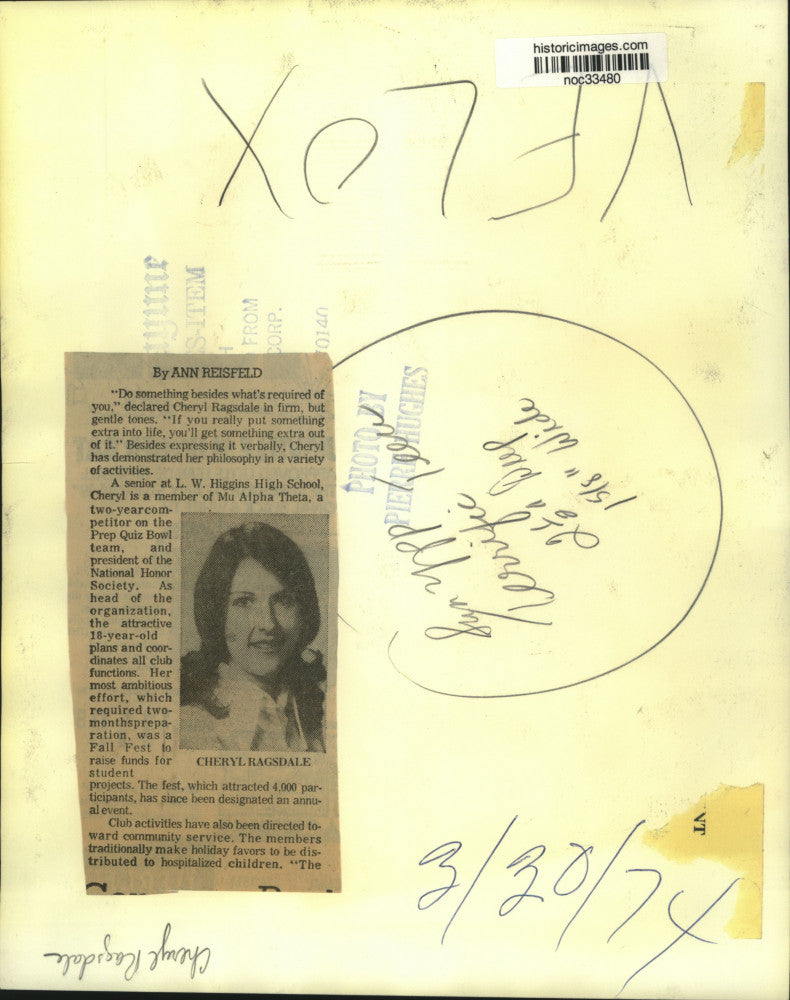 historicimages.com
noc33480
S-ITEM
FROM
CORP.
0140
PHOTO BY
PIERRE HUGHES
Sun
Terrific Teen
Deep
1 5/8" Wide
By ANN REISFELD
"Do something besides what's required of
you," declared Cheryl Ragsdale in firm, but
gentle tones. "If you really put something
extra into life, you'll get something extra out
of it." Besides expressing it verbally, Cheryl
has demonstrated her philosophy in a variety
of activities.
A senior at L. W. Higgins High School,
Cheryl is a member of Mu Alpha Theta, a
two-yearcom-
petitor on the
Prep Quiz Bowl
team, and
president of the
National Honor
Society. As
head of the
organization,
the attractive
18-year-old
plans and coor-
dinates all club
functions. Her
most ambitious
effort, which
required two-
monthsprepa-
ration, was a
Fall Fest to
raise funds for
student
projects. The fest, which attracted 4,000 par-
ticipants, has since been designated an annu-
al event.
Club activities have also been directed to-
ward community service. The members
traditionally make holiday favors to be dis-
tributed to hospitalized children. "The
CHERYL RAGSDALE
VT
3/30/74
Cheryl Ragsdale